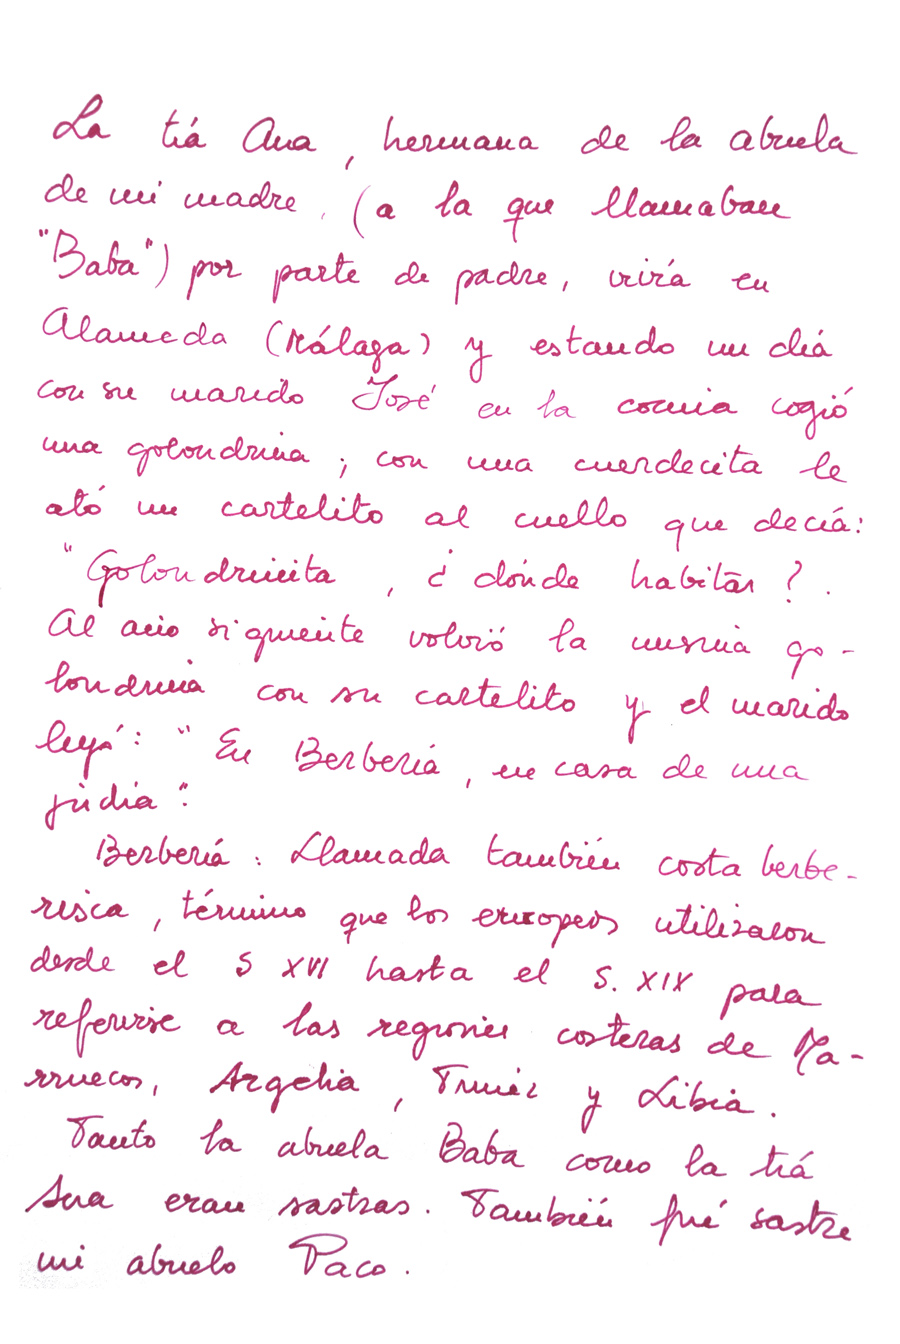 La tiá Ana, hermana de la abuela
de mi madre, (a la que llamaban
"Baba") por parte de padre, viviá en
Alameda (Málaga) y estando un diá
con su marido José en la cocina cogió
una golondrina; con una cuerdecita le
ató un cartelito al cuello que deciá:
"Golondrinita, ¿dónde habitas?.
Al año siguiente volvió la misma go-
londrina con su cartelito y el marido
leyó: "En Berberiá, en casa de una
judia".
Berberiá: Llamada también costa berbe-
risca, término que los europeos utilizaron
desde el S XVI hasta el S. XIX para
referirse a las regiones costeras de Ma-
rruecos, Argelia, Túnez y Libia.
Tanto la abuela Baba como la tiá
Ana eran sastras. También fué sastre
mi abuelo Paco.